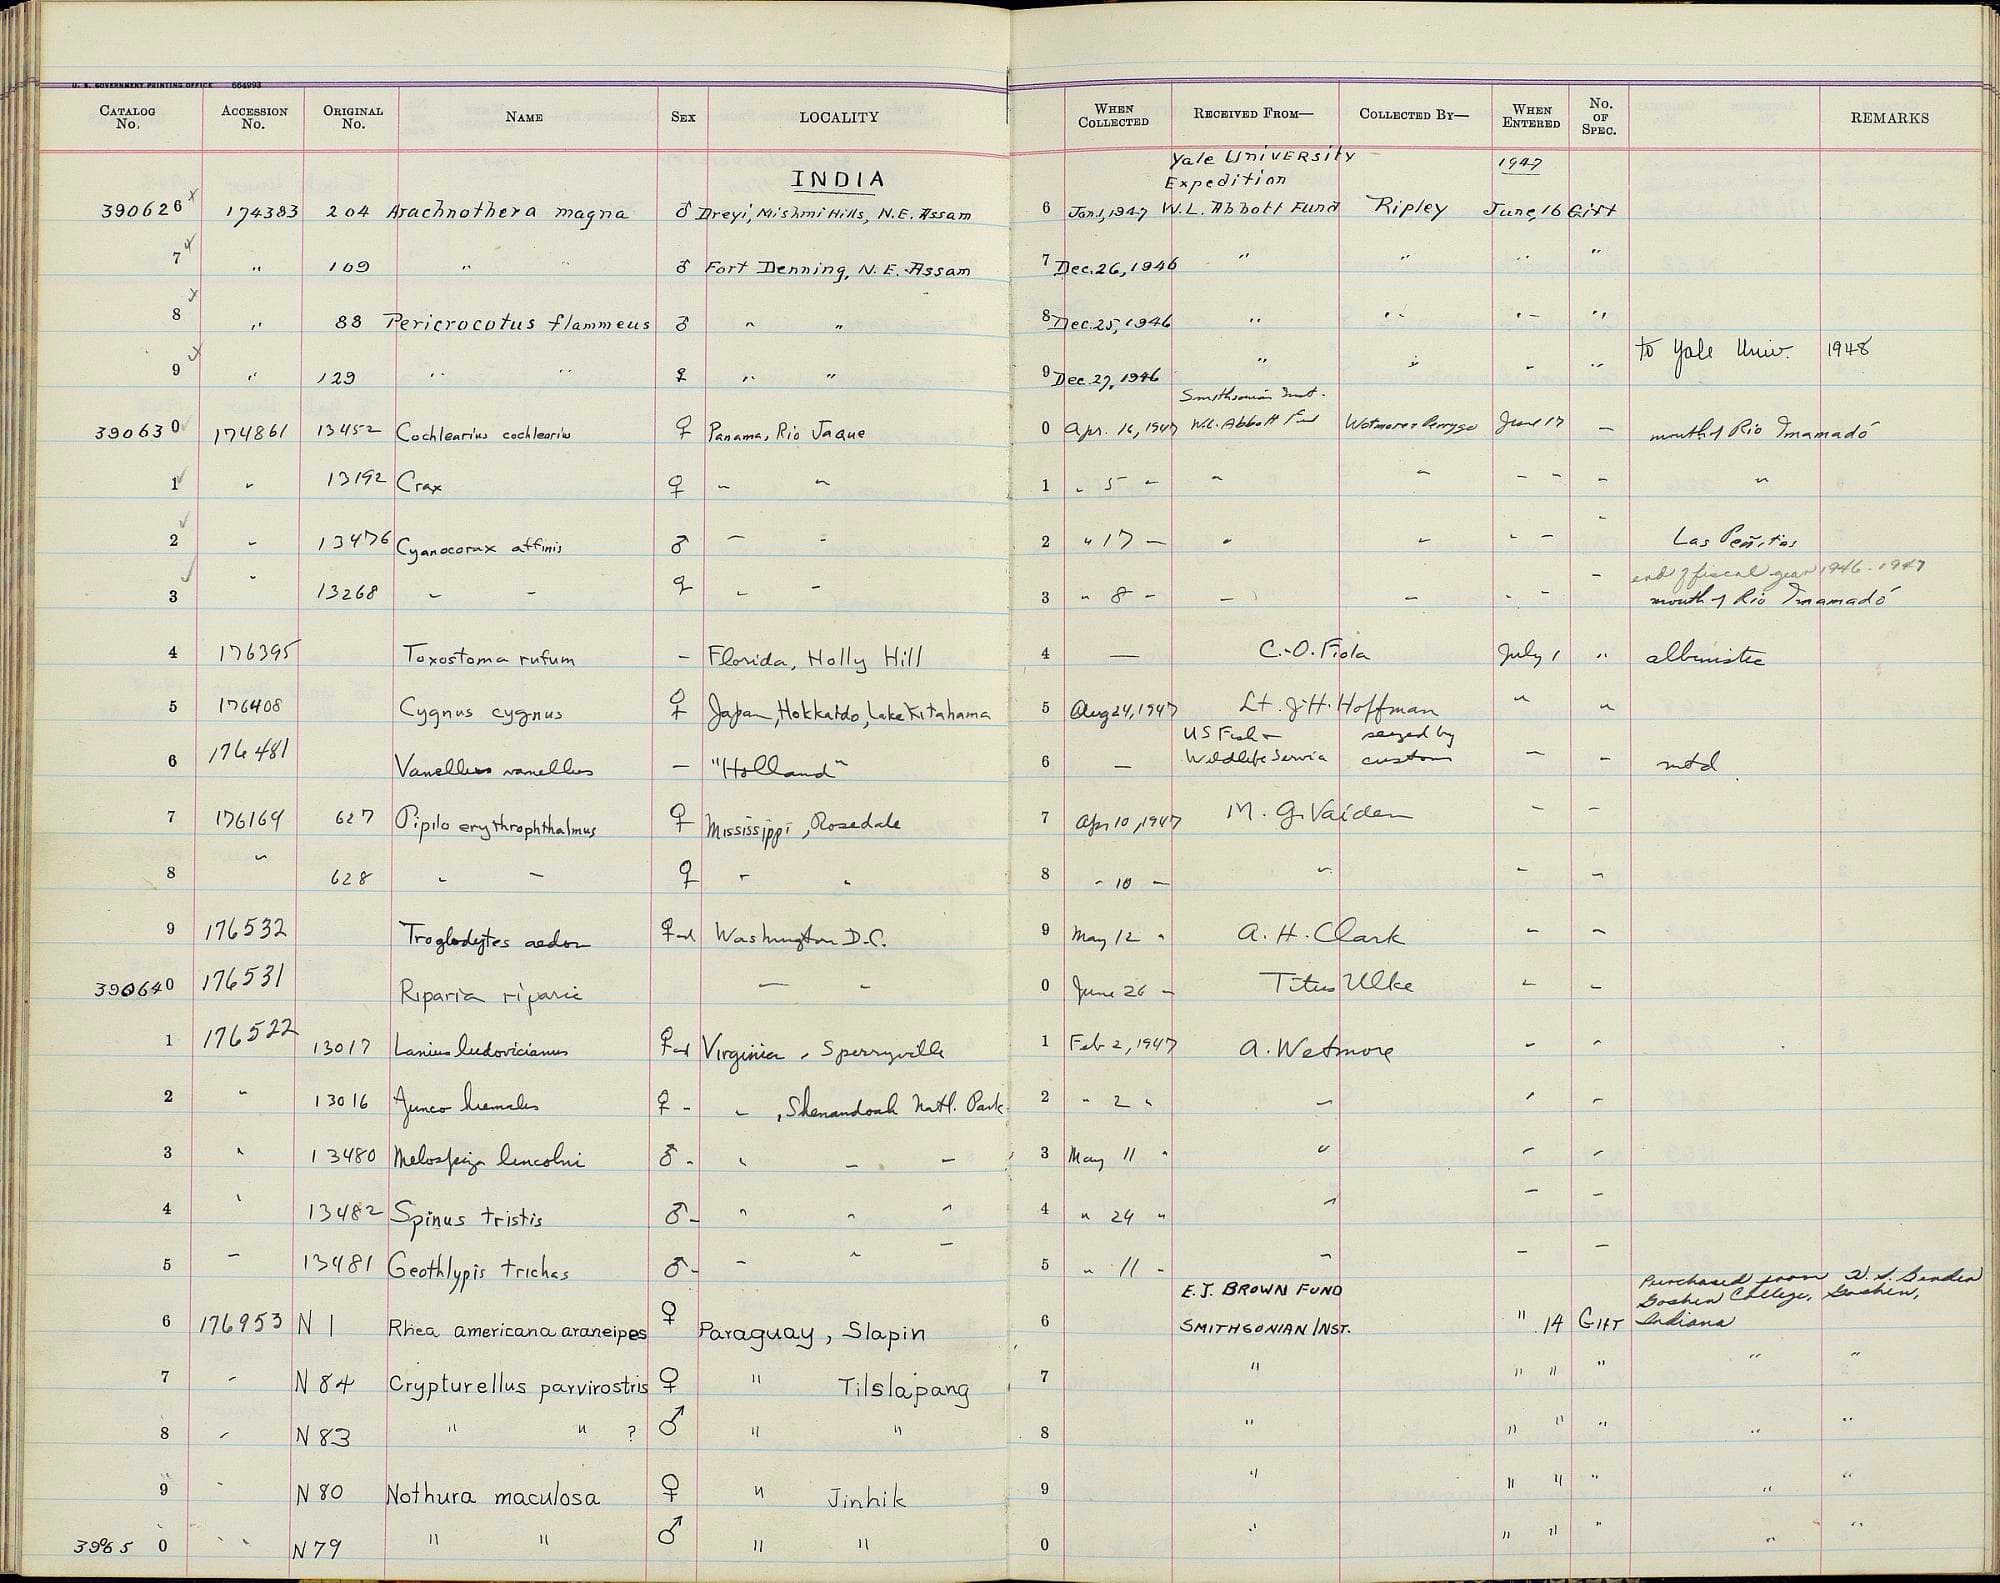 U. S. GOVERNMENT PRINTING OFFICE 664993
CATALOG No. ACCESSION No. ORIGINAL No. NAME SEX LOCALITY WHEN COLLECTED RECEIVED FROM— COLLECTED BY— WHEN ENTERED No. OF SPEC. REMARKS
INDIA Yale University Expedition 1947
390626 174383 204 Arachnothera magna ♂ Dreyi, Mishmi Hills, N.E. Assam 6 Jan. 1, 1947 W.L. Abbott Fund Ripley June, 16 Gift
7 " 109 " " ♂ Fort Denning, N.E. Assam 7 Dec. 26, 1946 " " " "
8 " 88 Pericrocotus flammeus ♂ " " 8 Dec. 25, 1946 " " " "
9 " 129 " " ♀ " " 9 Dec. 27, 1946 " " " " to Yale Univ. 1948
Smithsonian Inst.
390630 174861 13452 Cochlearius cochlearius ♀ Panama, Rio Jaque 0 Apr. 16, 1947 W.L. Abbott Fund Wetmore & Perrygo June 17 – mouth of Rio Imamadó
1 " 13192 Crax ♀ " " 1 " 5 " " " " " " "
2 " 13476 Cyanocorax affinis ♂ " " 2 " 17 " " " " " " Las Peñitas
end of fiscal year 1946-1947
3 " 13268 " " ♀ " " 3 " 8 " " " " " " mouth of Rio Imamadó
4 176395 Toxostoma rufum – Florida, Holly Hill 4 — C.-O. Fiola July 1 " albinistic
5 176408 Cygnus cygnus ♀ Japan, Hokkaido, Lake Kitahama 5 Aug 24, 1947 Lt. J. H. Hoffman " "
US Fish & seized by
6 176481 Vanellus vanellus – "Holland" 6 — Wildlife Service customs " " mtd.
7 176164 627 Pipilo erythrophthalmus ♀ Mississippi, Rosedale 7 Apr 10, 1947 M. G. Vaiden " "
8 " 628 " " ♀ " " 8 " 10 " " " "
9 176532 Troglodytes aedon ♀ad Washington D.C. 9 May 12 " A. H. Clark " "
390640 176531 Riparia riparia " " 0 June 26 " Titus Ulke " "
1 176522 13017 Lanius ludovicianus ♀ad Virginia, Sperryville 1 Feb 2, 1947 A. Wetmore " "
2 " 13016 Junco hiemalis ♀ " " , Shenandoah Natl. Park 2 " 2 " " " "
3 " 13480 Melospiza lincolni ♂ " " " " 3 May 11 " " " "
4 " 13482 Spinus tristis ♂ " " " " 4 " 24 " " " "
5 " 13481 Geothlypis trichas ♂ " " " " 5 " 11 " " " "
E. J. BROWN FUND Purchased from
Goshen College, Goshen,
6 176953 N 1 Rhea americana araneipes ♀ Paraguay, Slapin 6 SMITHSONIAN INST. " 14 GIFT Indiana
7 " N 84 Crypturellus parvirostris ♀ " Tilslapang 7 " " " " " "
8 " N 83 " " ? ♂ " " 8 " " " " " "
9 " N 80 Nothura maculosa ♀ " Jinhik 9 " " " " " "
39065 0 " N 79 " " ♂ " " 0 " " " " " "